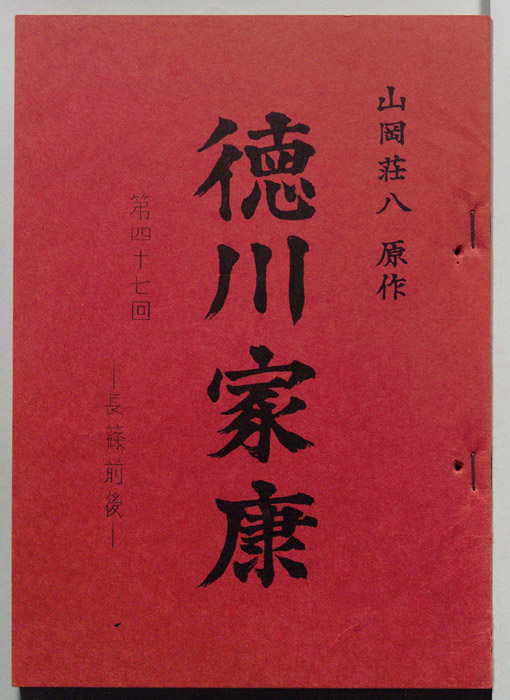 山岡荘八 原作
徳川家康
第四十七回
―長篠前後―